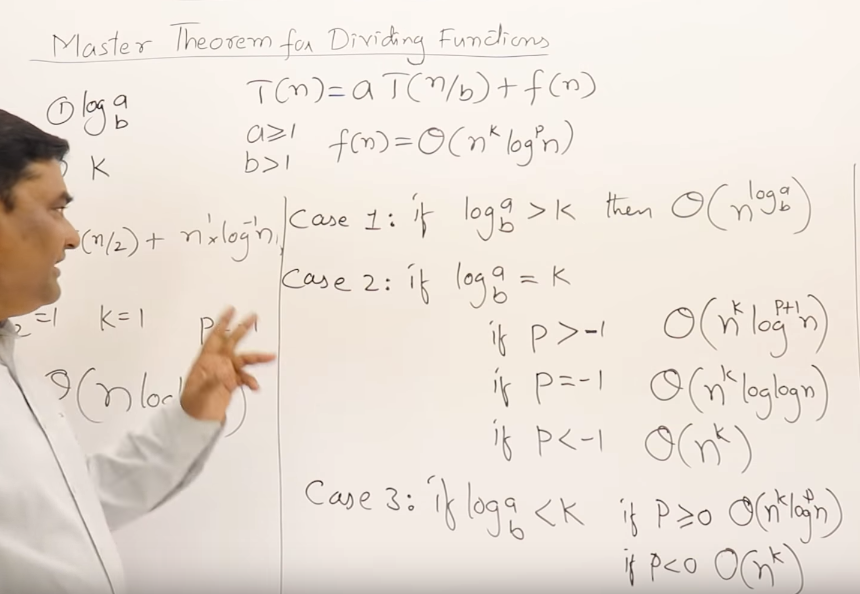 Master Theorem for Dividing Functions
① log_b^a
K
T(n) = a T(n/b) + f(n)
a ≥ 1
b > 1
f(n) = Θ(n^k log^p n)
(n/2) + n^1 × log^-1 n
2 = 1 K = 1 P
Θ(n log
Case 1: if log_b^a > K then Θ(n^(log_b^a))
Case 2: if log_b^a = K
if P > -1 Θ(n^k log^(p+1) n)
if P = -1 Θ(n^k log log n)
if P < -1 Θ(n^k)
Case 3: if log_b^a < K if P ≥ 0 Θ(n^k log^p n)
if P < 0 O(n^k)